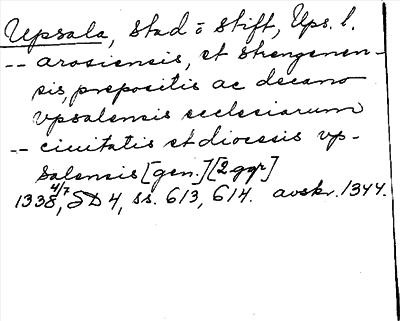 Upsala, stad o stift, Ups. l.
-- arosiensis, et strengenen-
sis, prepositis ac decano
vpsalensis ecclesiarum
-- ciuitatis et diocesis vp-
salensis [gen.] [2 ggr]
1338 4/7, SD 4, ss. 613, 614. avskr. 1344.